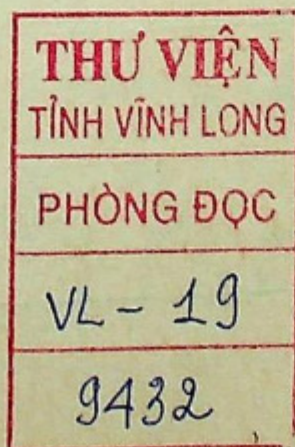 THƯ VIỆN
TỈNH VĨNH LONG
PHÒNG ĐỌC
VL - 19
9432